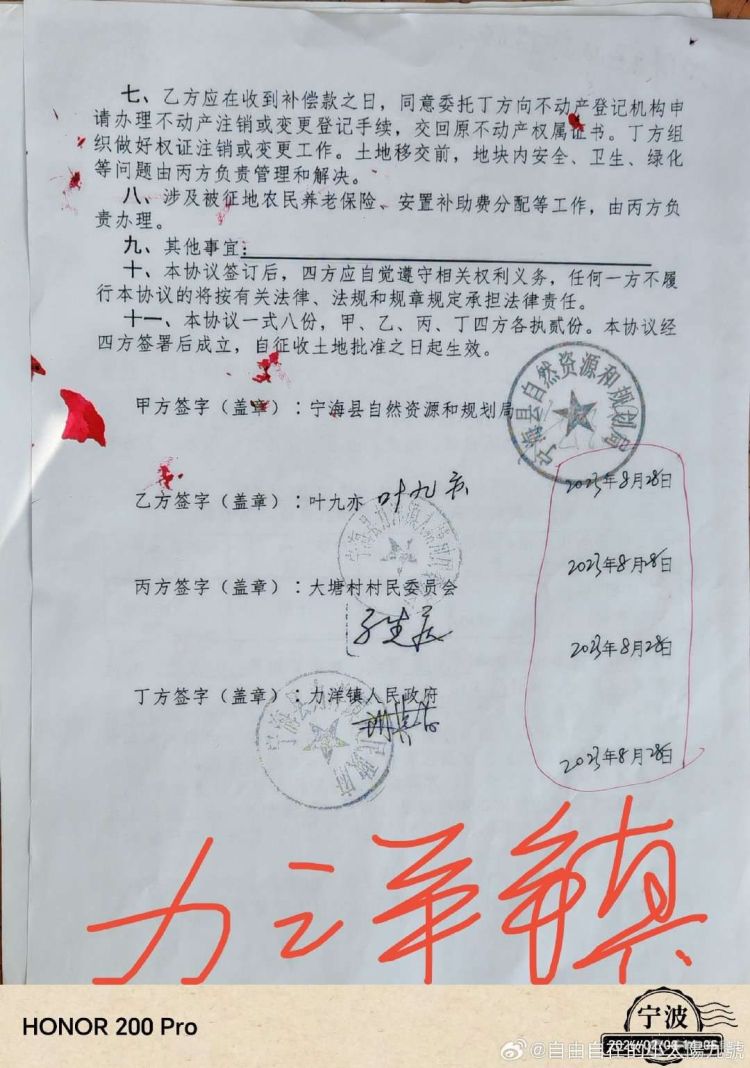 七、乙方应在收到补偿款之日，同意委托丁方向不动产登记机构申
请办理不动产注销或变更登记手续，交回原不动产权属证书。丁方组
织做好权证注销或变更工作。土地移交前，地块内安全、卫生、绿化
等问题由丙方负责管理和解决。
八、涉及被征地农民养老保险、安置补助费分配等工作，由丙方负
责办理。
九、其他事宜：
十、本协议签订后，四方应自觉遵守相关权利义务，任何一方不履
行本协议的将按有关法律、法规和规章规定承担法律责任。
十一、本协议一式八份，甲、乙、丙、丁四方各执贰份。本协议经
四方签署后成立，自征收土地批准之日起生效。
宁海县自然资源和规划局
甲方签字（盖章）：宁海县自然资源和规划局
2023年8月28日
乙方签字（盖章）：叶九亦 叶九亦
2023年8月28日
丙方签字（盖章）：大塘村村民委员会
2023年8月28日
丁方签字（盖章）：力洋镇人民政府
2023年8月28日
力洋镇
HONOR 200 Pro
宁波
@自由自在的小太陽九號